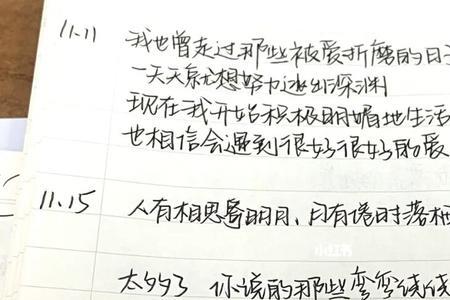 11.11 我也曾走过那些被爱折磨的日子
一天天就想努力逃出深渊
现在我开始积极明媚地生活
也相信会遇到很好很好的爱
11.15 人有相思寄明月，月有偿时落栖
小红书
太多了 你说的那些弯弯绕绕